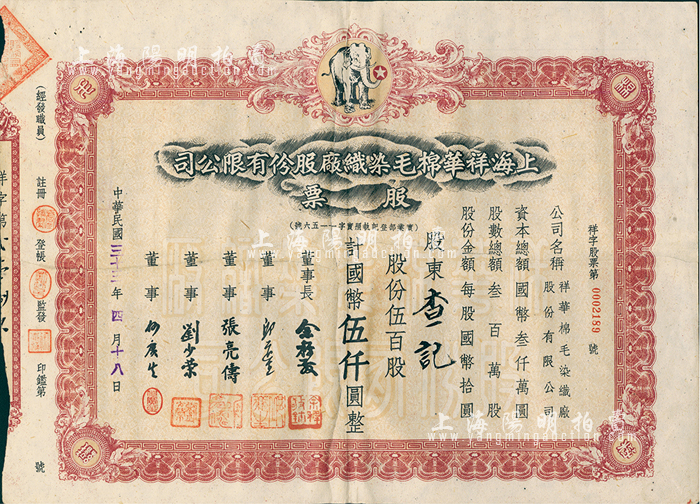 上海祥華棉毛染織廠股份有限公司
股票
(實業部登記執照實字一一五六號)
祥字股票第 0002189 號
公司名稱 祥華棉毛染織廠股份有限公司
資本總額 國幣叁仟萬圓
股數總額 叁百萬股
股份金額 每股國幣拾圓
股東 查一記
股份伍百股
計國幣伍仟圓整
董事長
董事
董事 張亮傳
董事 劉少棠
董事
中華民國三十三年四月十八日
(經發職員)
註冊
登帳
監發
印鑑第 號
祥字第
上海陽明拍賣
www.yangmingauction.com
上海陽明拍賣
www.yangmingauction.com
上海陽明拍賣
www.yangmingauction.com